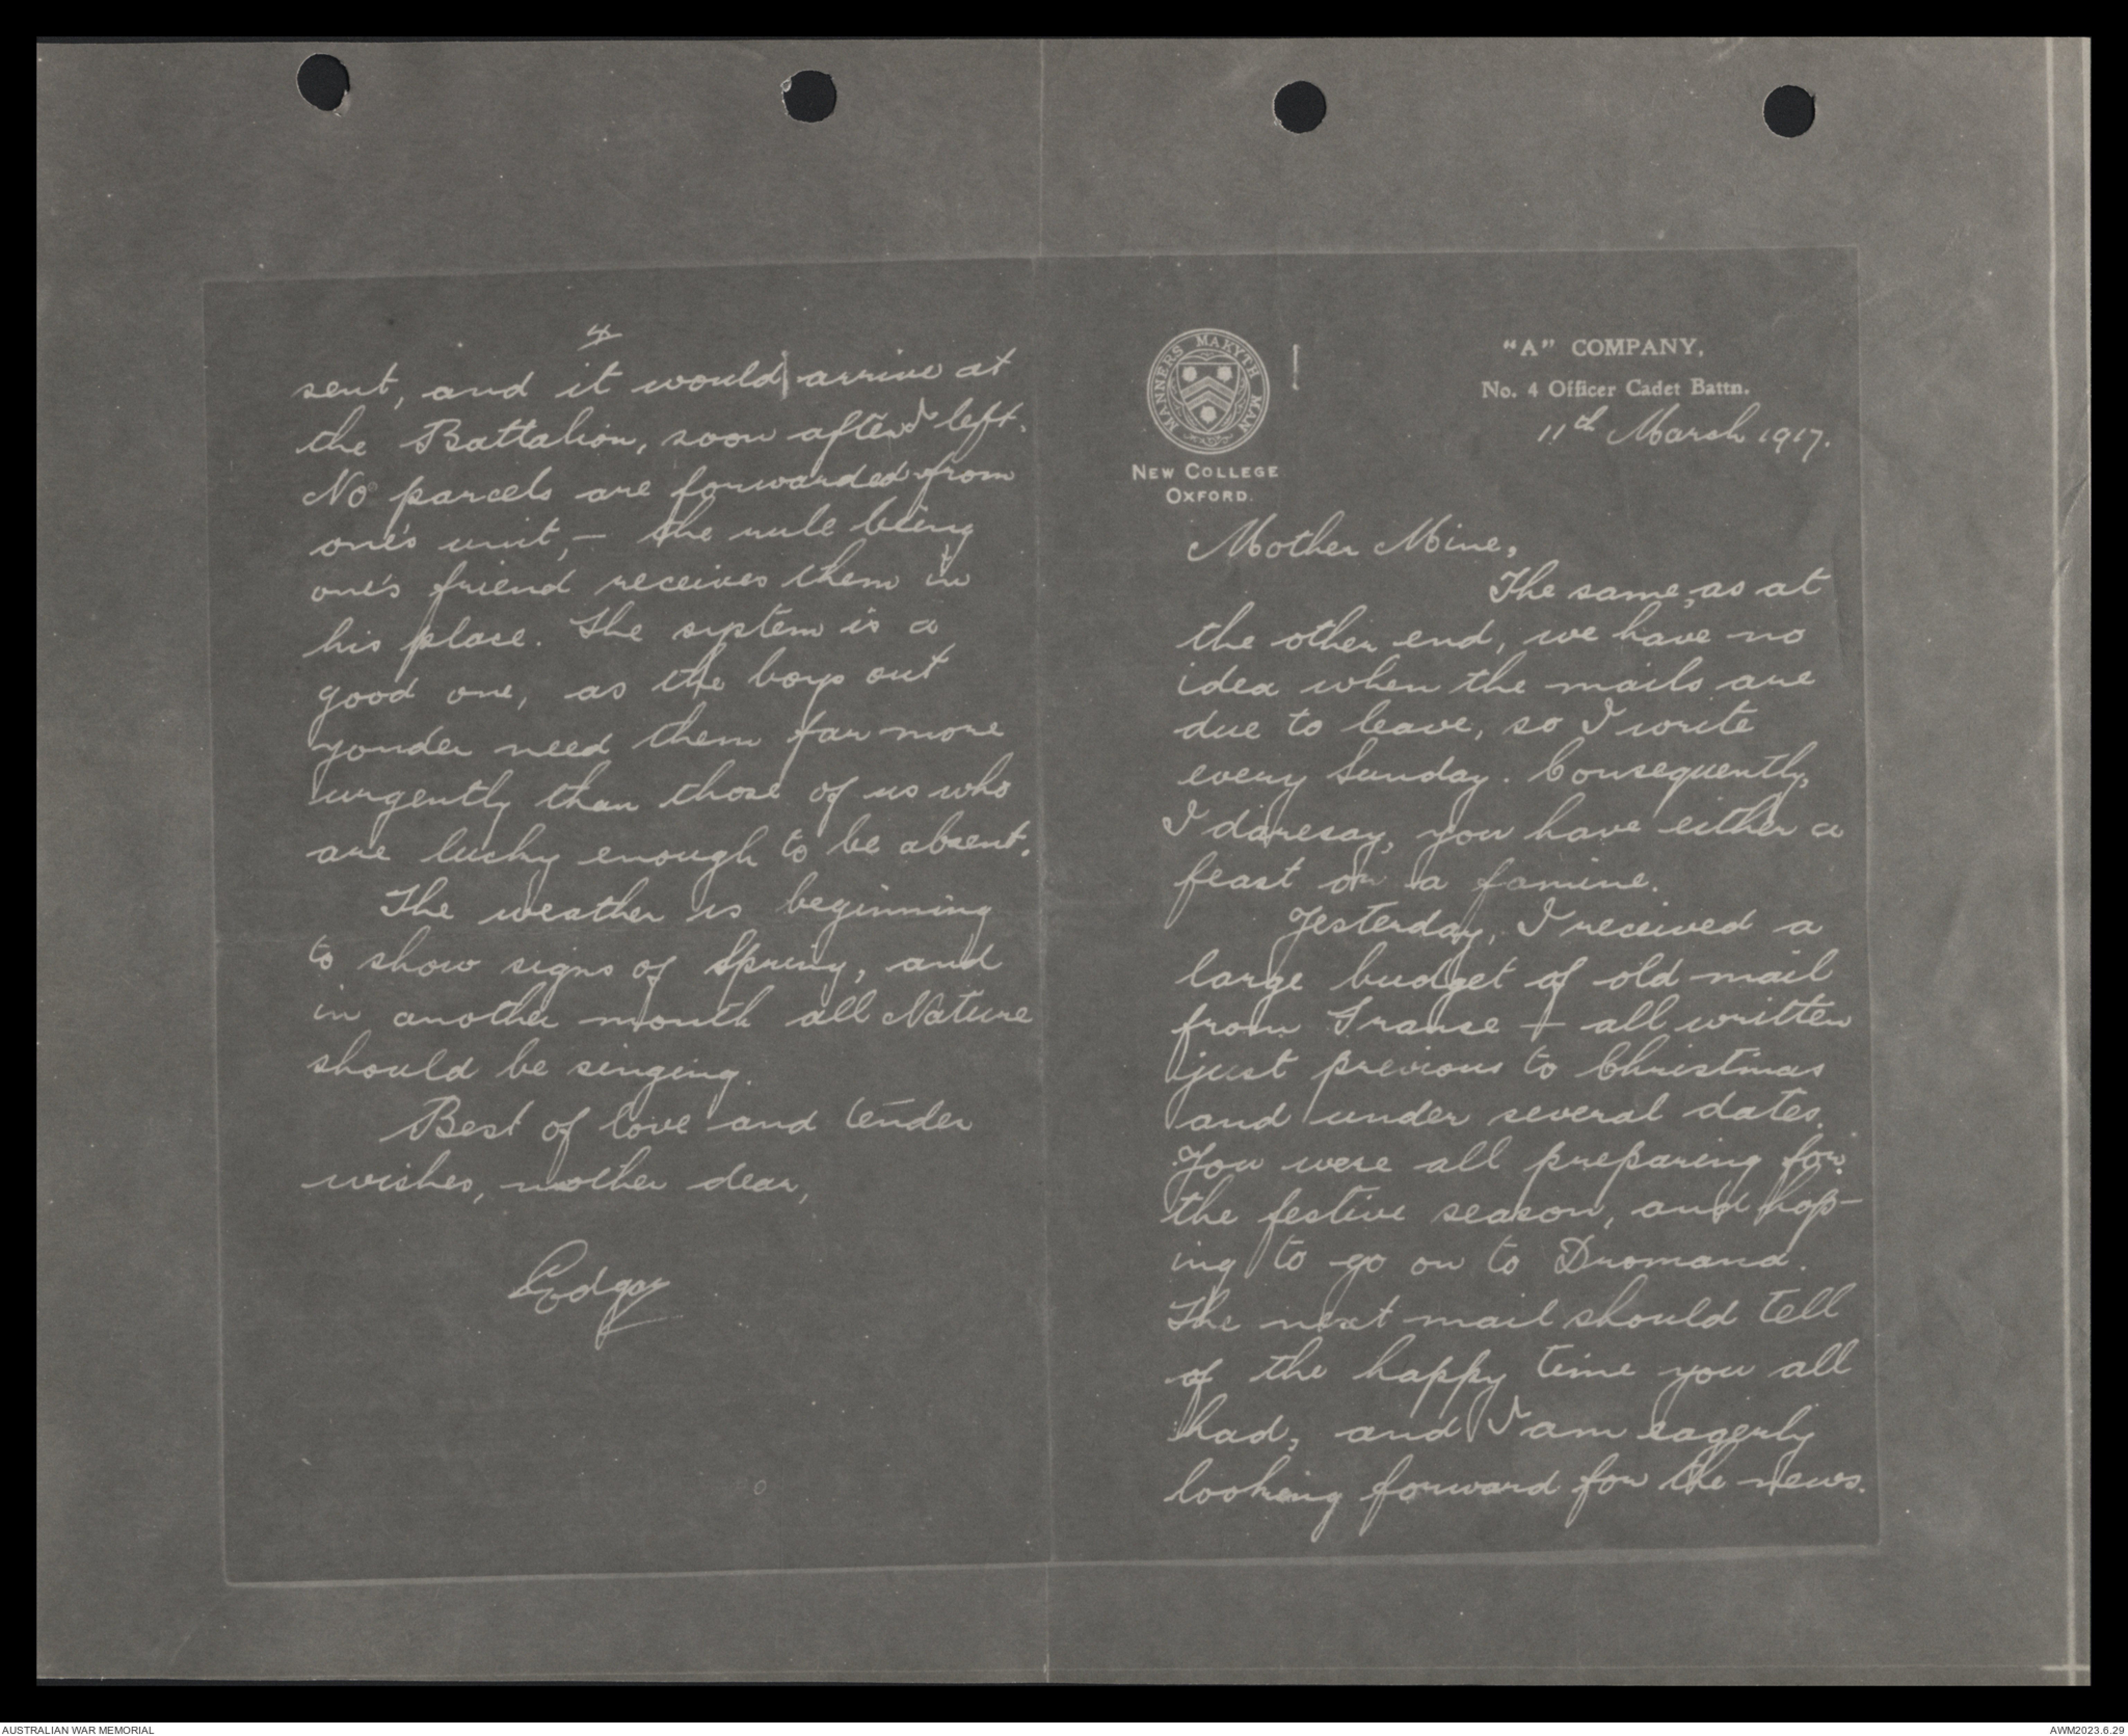 4
sent, and it would arrive at
the Battalion, soon after I left.
No parcels are forwarded from
one's unit, – the rule being
one's friend receives them in
his place. The system is a
good one, as the boys out
yonder need them far more
urgently than those of us who
are lucky enough to be absent.
The weather is beginning
to show signs of Spring, and
in another month all Nature
should be singing.
Best of love and tender
wishes, mother dear,
Edgar
MANNERS MAKYTH MAN
NEW COLLEGE
OXFORD.
"A" COMPANY,
No. 4 Officer Cadet Battn.
11th March 1917.
Mother Mine,
The same, as at
the other end, we have no
idea when the mails are
due to leave, so I write
every Sunday. Consequently,
I daresay, you have either a
feast or a famine.
Yesterday, I received a
large budget of old mail
from France – all written
just previous to Christmas
and under several dates.
You were all preparing for
the festive season, and hop-
ing to go on to Dromana.
The next mail should tell
of the happy time you all
had, and I am eagerly
looking forward for the news.
AUSTRALIAN WAR MEMORIAL
AWM2023.6.29